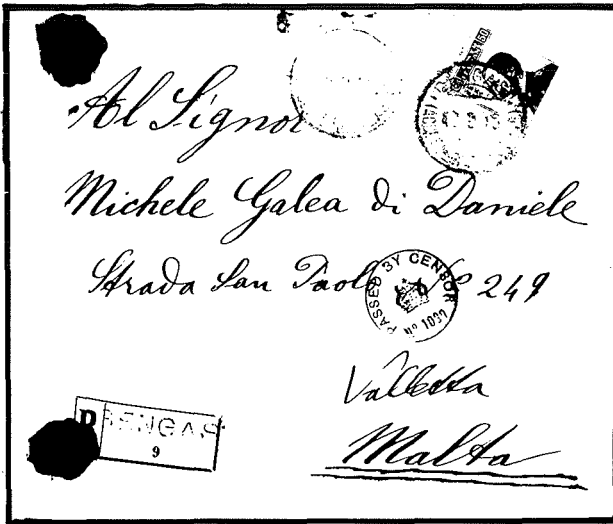 Al Signor
Michele Galea di Daniele
Strada San Paolo No 249
PASSED BY CENSOR
No 1090
Valletta
Malta
R BENGASI
9